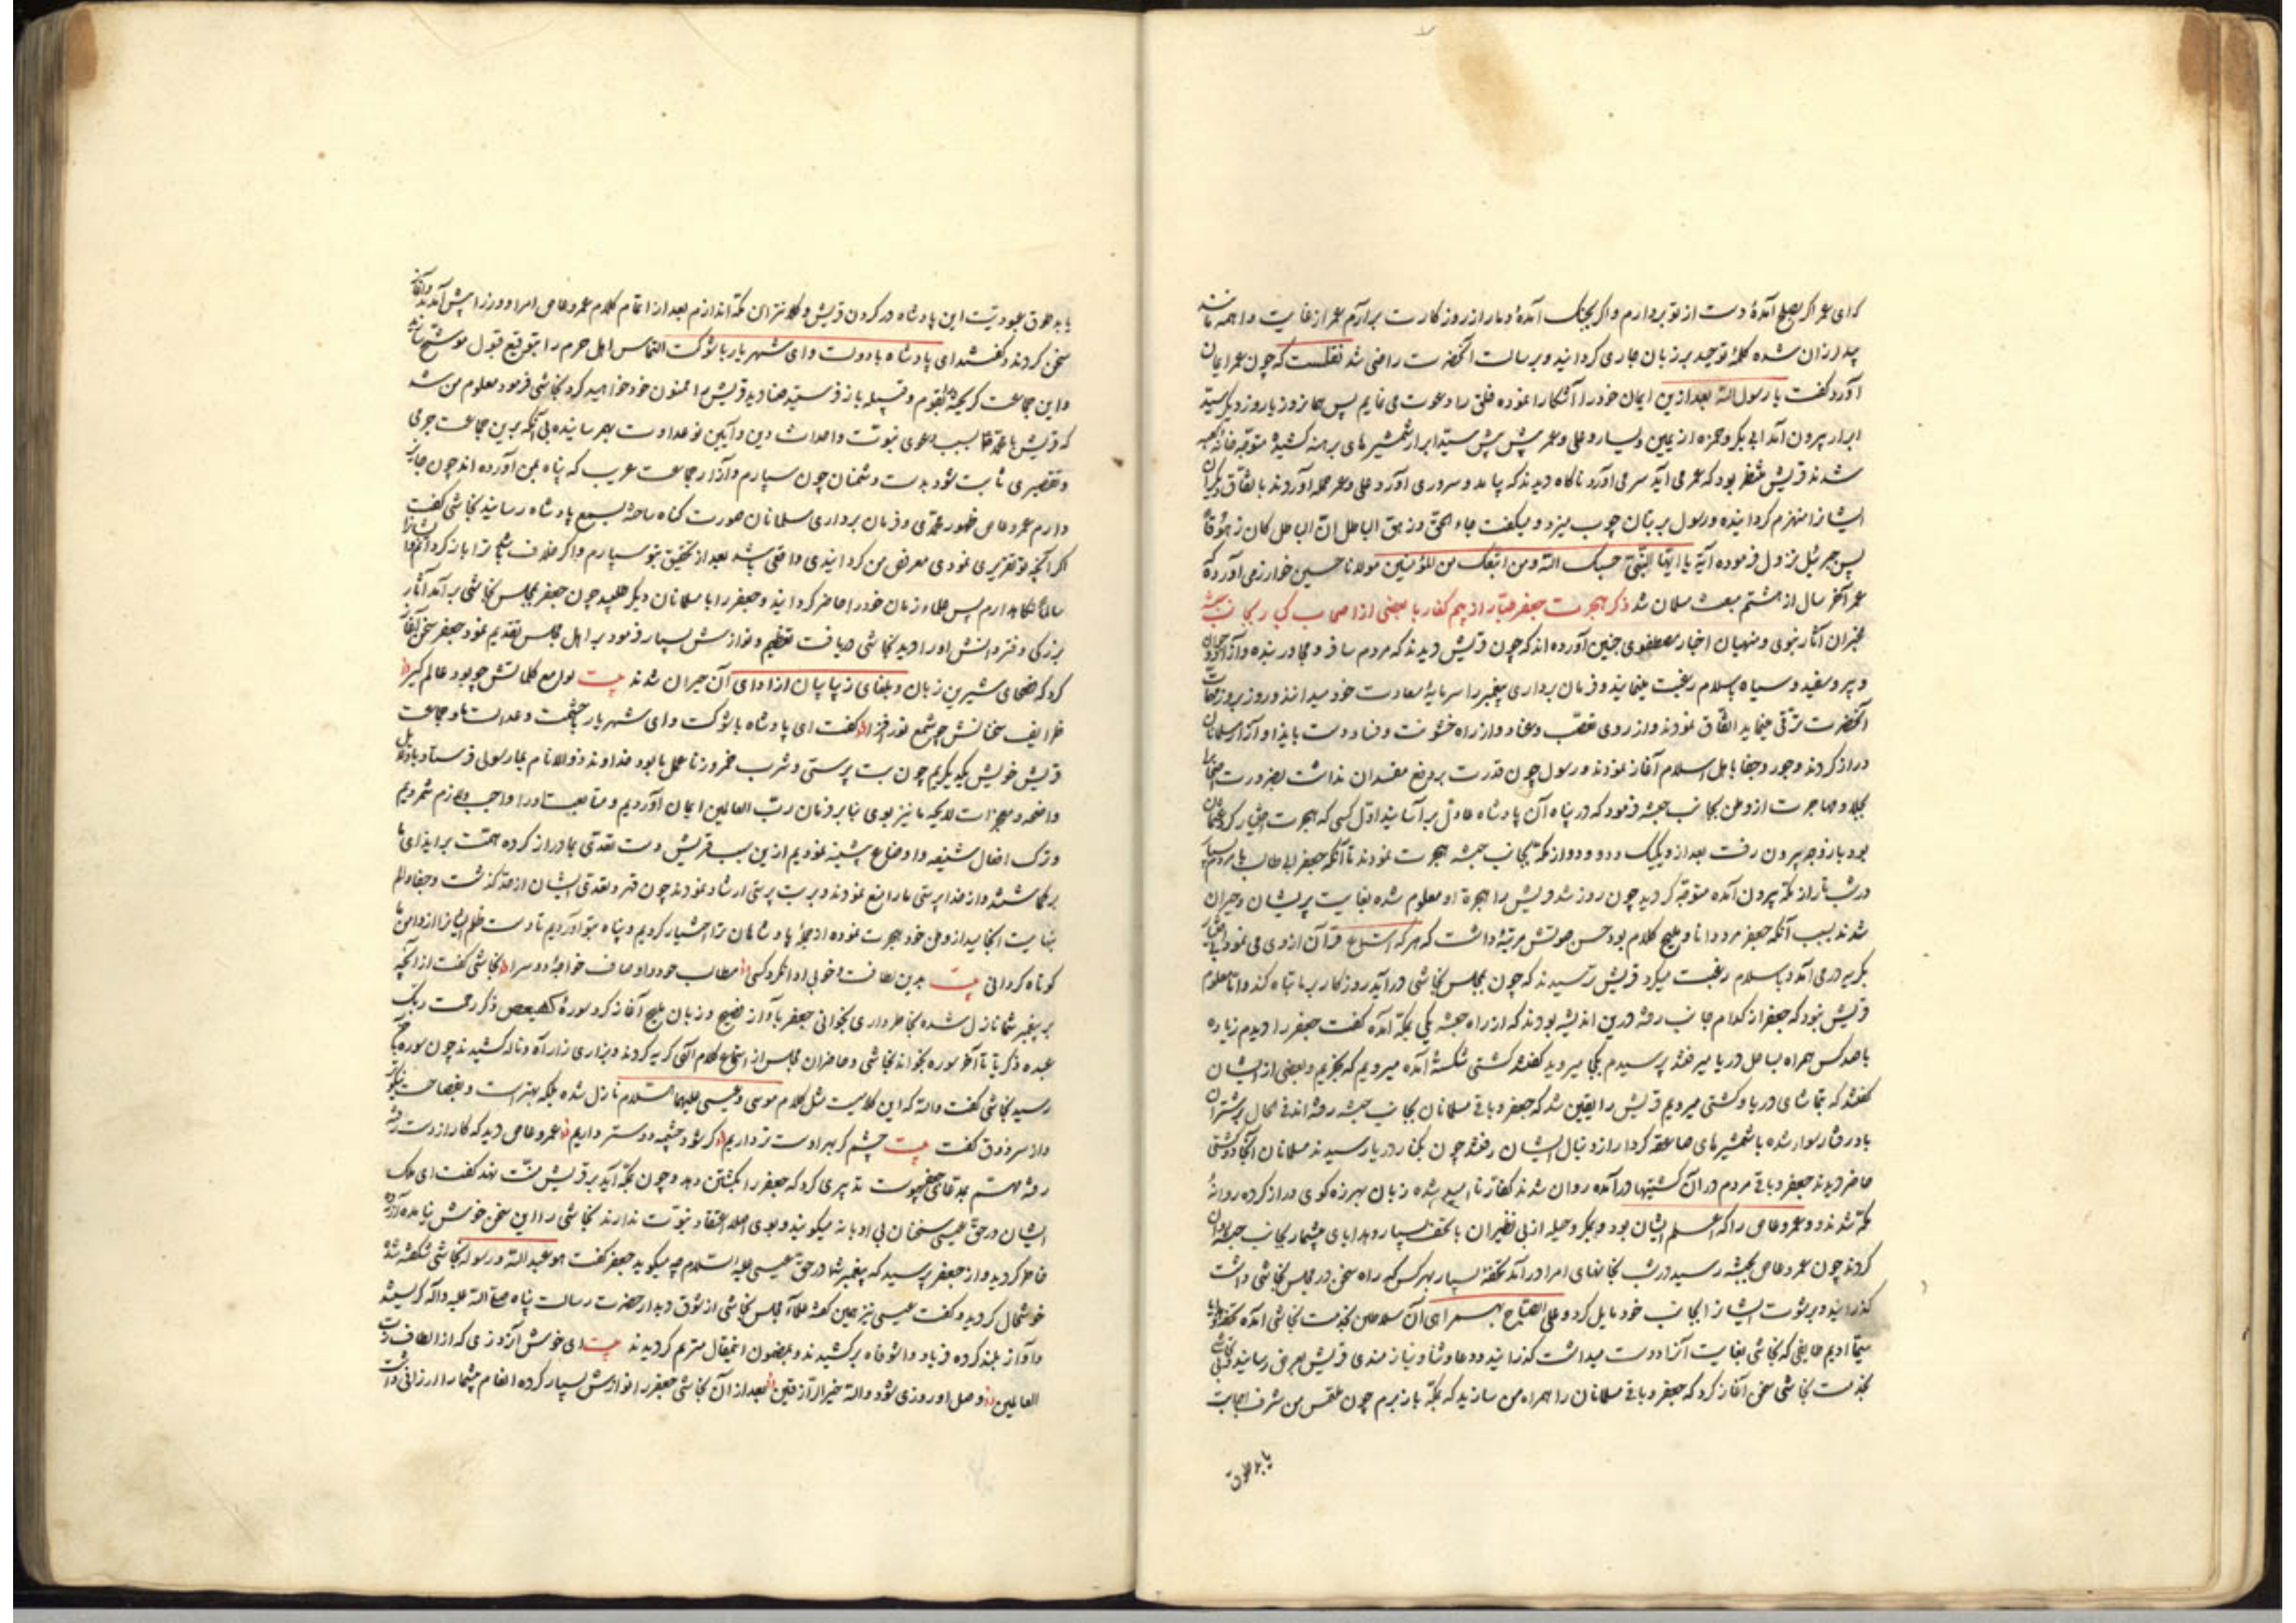 که ای عمر اگر بصلح آمدهٔ دست از تو بردارم و اگر بجنک آمدهٔ دمار از روزکارت برآرم عمر از غایت واهمه مانند
بید لرزان شده کلمهٔ توحید بر زبان جاری کردانید و برسالت آنحضرت راضی شد نقلست که چون عمر ایمان
آورد کفت یا رسول الله بعد ازین ایمان خود را آشکارا نموده خلق را دعوت می نمایم پس همان روز یا روز دیکر سید
ابرار بیرون آمد ابی بکر و حمزه از یمین و یسار و علی و عمر پیش پیش سید ابرار شمشیرهای برهنه کشیده متوجه خانه کعبه
شدند قریش منتظر بود که عمر می آید سر می آورد ناکاه دیدند که پا آمد و سروری آورد علی و عمر حمله آوردند باتفاق دیکران
ایشانرا منهزم کردانیده و رسول بر بتان چوب میزد و میکفت جاء الحق و زهق الباطل ان الباطل کان زهوقا
پس جبرئیل نزول فرموده آیه یا ایها النبی حسبک الله و من اتبعک من المؤمنین مولانا حسین خوارزمی آورده که
عمر آخر سال از هشتم مبعث مسلمان شد ذکر هجرت جعفر طیار از بیم کفار با بعضی از اصحاب کبار بجانب حبشه
مخبران آثار نبوی و منهیان اخبار مصطفوی چنین آورده اند که چون قریش دیدند که مردم مسافر و مجاور بنده و آزاد جوان
و پیر و سفید و سیاه باسلام رغبت مینمایند و فرمان برداری پیغمبر را سرمایهٔ سعادت خود میدانند و روز بروز مهمات
آنحضرت ترقی مینماید اتفاق نمودند و از روی تعصب و عناد و از راه خشونت و فساد دست بایذا و آزار مسلمانان
دراز کردند و جور و جفا باهل اسلام آغاز نمودند و رسول چون قدرت بر دفع مفسدان نداشت بضرورت اصحاب را
بجلا و مهاجرت از وطن بجانب حبشه فرمود که در پناه آن پادشاه عادل برآسایند اول کسی که هجرت اختیار کرد عثمان
بود با زوجه بیرون رفت بعد از و یکیک و دو دو از مکه بجانب حبشه هجرت نمودند تا آنکه جعفر ابی طالب با مردم بسیار
در شب تار از مکه بیرون آمده متوجه کردید چون روز شد قریش را هجرة او معلوم شده بغایت پریشان و حیران
شدند بسبب آنکه جعفر مرد دانا و ملیح کلام بود حسن صوتش مرتبهٔ داشت که هر که استماع قرآن از وی می نمود بی اختیار
بکریه در می آمد و باسلام رغبت میکرد قریش ترسیدند که چون بمجلس نجاشی درآید روزکار بر ما تباه کند و اما معلوم
قریش نبود که جعفر از کدام جانب رفته درین اندیشه بودند که از راه حبشه یکی بمکه آمده کفت جعفر را دیدم زیاده
با صد کس همراه بساحل دریا میرفتند پرسیدم بکجا میروید کفتند کشتی شکسته آمده میرویم که بخریم و بعضی از ایشان
کفتند که بتماشای دریا و کشتی میرویم قریش را یقین شد که جعفر و باقی مسلمانان بجانب حبشه رفته اند فی الحال بر شتران
باد رفتار سوار شده با شمشیرهای صاعقه کردار از دنبال ایشان رفتند چون بکنار دریا رسیدند مسلمانان آنجا دو کشتی
حاضر دیدند جعفر و باقی مردم در آن کشتیها درآمده روان شدند کفار ناامید شده زبان بهرزه کوی دراز کرده روانهٔ
مکه شدند و عمرو عاص را که اعلم ایشان بود و بمکر و حیله از بی نظیران با تحف بسیار و هدایای بیشمار بجانب حبشه روان
کردند چون عمرو عاص بحبشه رسید در شب بخانهای امرا درآمد تحفهٔ بسیار بهر کس که راه سخن در مجلس نجاشی داشت
کذرانید و برشوت ایشانرا بجانب خود مایل کرد و علی الصباح بهمراهی آن سلاطین بخدمت نجاشی آمده تحفه و هدایا
سیما ادیم طایفی که نجاشی بغایت آنرا دوست میداشت کذرانید و دعا و ثنا و نیازمندی قریش بعرض رسانید
بخدمت نجاشی سخن آغاز کرد که جعفر و باقی مسلمانان را همراه من سازید که بمکه باز برم چون ملتمس من شرف اجابت
یابد طوق
یابد طوق عبودیت این پادشاه در کردن قریش و کلانتران مکه اندازم بعد از اتمام کلام عمرو عاص امرا و وزرا پیش آمدند و آغاز
سخن کردند و کفتند ای پادشاه با دولت و ای شهریار با شوکت التماس اهل حرم را بتوقیع قبول موشح ساخته
و این جماعت کریخته بقوم و قبیله باز فرستید صنادید قریش را ممنون خود خواهید کرد نجاشی فرمود معلوم من شد
که قریش با محمد بسبب دعوی نبوت و احداث دین و آیین نو عداوت بهم رسانیده بی آنکه برین جماعت جرمی
و تقصیری ثابت شود بدست دشمنان چون سپارم و آزار جماعت عرب که پناه بمن آورده اند چون جایز
دارم عمرو عاص ظهور محمدی و فرمان برداری مسلمانان صورت کناه ساخته بسمع پادشاه رسانید نجاشی کفت
اگر آنچه تو تقریر نمودی معروض من کردانیدی واقعی باشد بعد از تحقیق بتو سپارم و اگر خلاف باشد ترا باز کردانم و ایشانرا
سالما نکاهدارم پس علماء زمان خود را حاضر کردانید و جعفر را با مسلمانان دیکر طلبید چون جعفر بمجلس نجاشی برآمد آثار
بزرکی و فر دانش او را دید نجاشی دریافت تعظیم و نوازش بسیار فرمود بر اهل مجلس تقدیم نمود جعفر سخن آغاز
کرد که فصحای شیرین زبان و بلغای زیبا بیان از ادای آن حیران شدند بیت لوامع کلماتش چو بود عالم کیر
ظرایف سخنانش چو شمع نور افزا کفت ای پادشاه با شوکت و ای شهریار با حشمت و عدالت ما و جماعت
قریش خویش یکدیکریم چون بت پرستی و شرب خمر و زنا عمل ما بود خداوند ذو الانام بما رسولی فرستاد با دلایل
واضحه و معجزات لایحه ما نیز بوی بنابر فرمان رب العالمین ایمان آوردیم و متابعت او را واجب و لازم شمردیم
و ترک افعال شنیعه و اوضاع پیشینه نمودیم ازین سبب قریش دست تعدی بما دراز کرده همت بر ایذای ما
برکماشتند و از خدا پرستی ما را منع نمودند و بر بت پرستی ارشاد نمودند چون قهر و تعدی ایشان از حد کذشت و جفا و الم
بنهایت انجامید از وطن خود هجرت نموده از جملهٔ پادشاهان ترا اختیار کردیم و پناه بتو آوردیم تا دست ظلم ایشانرا از دامن ما
کوتاه کردانی بیت بدین لطافت و خوبی ادا نکرد کسی مطالب خود و اوصاف خواجهٔ دو سرا نجاشی کفت از آنچه
بر پیغمبر شما نازل شده بخاطر داری بخوانی جعفر بآواز فصیح و زبان ملیح آغاز کرد سورهٔ کهیعص ذکر رحمت ربک
عبده زکریا تا آخر سوره بخواند نجاشی و حاضران مجلس از استماع کلام الهی کریه کردند و بزاری زار آه و ناله کشیدند چون سوره بختم
رسید نجاشی کفت والله که این کلامیست مثل کلام موسی و عیسی علیهما السلام نازل شده بلکه بهتر است و بفصاحت نیکوتر
و از سر ذوق کفت بیت چشم کر بهر اوست تر داریم کر شود چشمه دوستر داریم عمرو عاص دید که کار از دست رفته
رفته تدبیری کرد که جعفر را بکشتن دهد و چون بمکه آید بر قریش منت نهد کفت ای ملک
ایشان در حق عیسی سخنان بی ادبانه میکویند و بوی اصلا اعتقاد نبوت ندارند نجاشی را این سخن خوش نیامده آزرده
خاطر کردید و از جعفر پرسید که پیغمبر شما در حق عیسی علیه السلام چه میکوید جعفر کفت هو عبد الله و رسوله نجاشی شکفته شده
خوشحال کردید و کفت عیسی نیز همین کفته علماء مجلس نجاشی از شوق دیدار حضرت رسالت پناه صلی الله علیه و آله کریسته
و آواز بلند کرده فریاد واشوقاه برکشیدند و بمضمون این مقال مترنم کردیدند بیت ای خوش آن روزی که از الطاف رب
العالمین وصل او روزی شود والله خیر الرازقین بعد از آن نجاشی جعفر را نوازش بسیار کرده انعام بیشمار ارزانی داشت